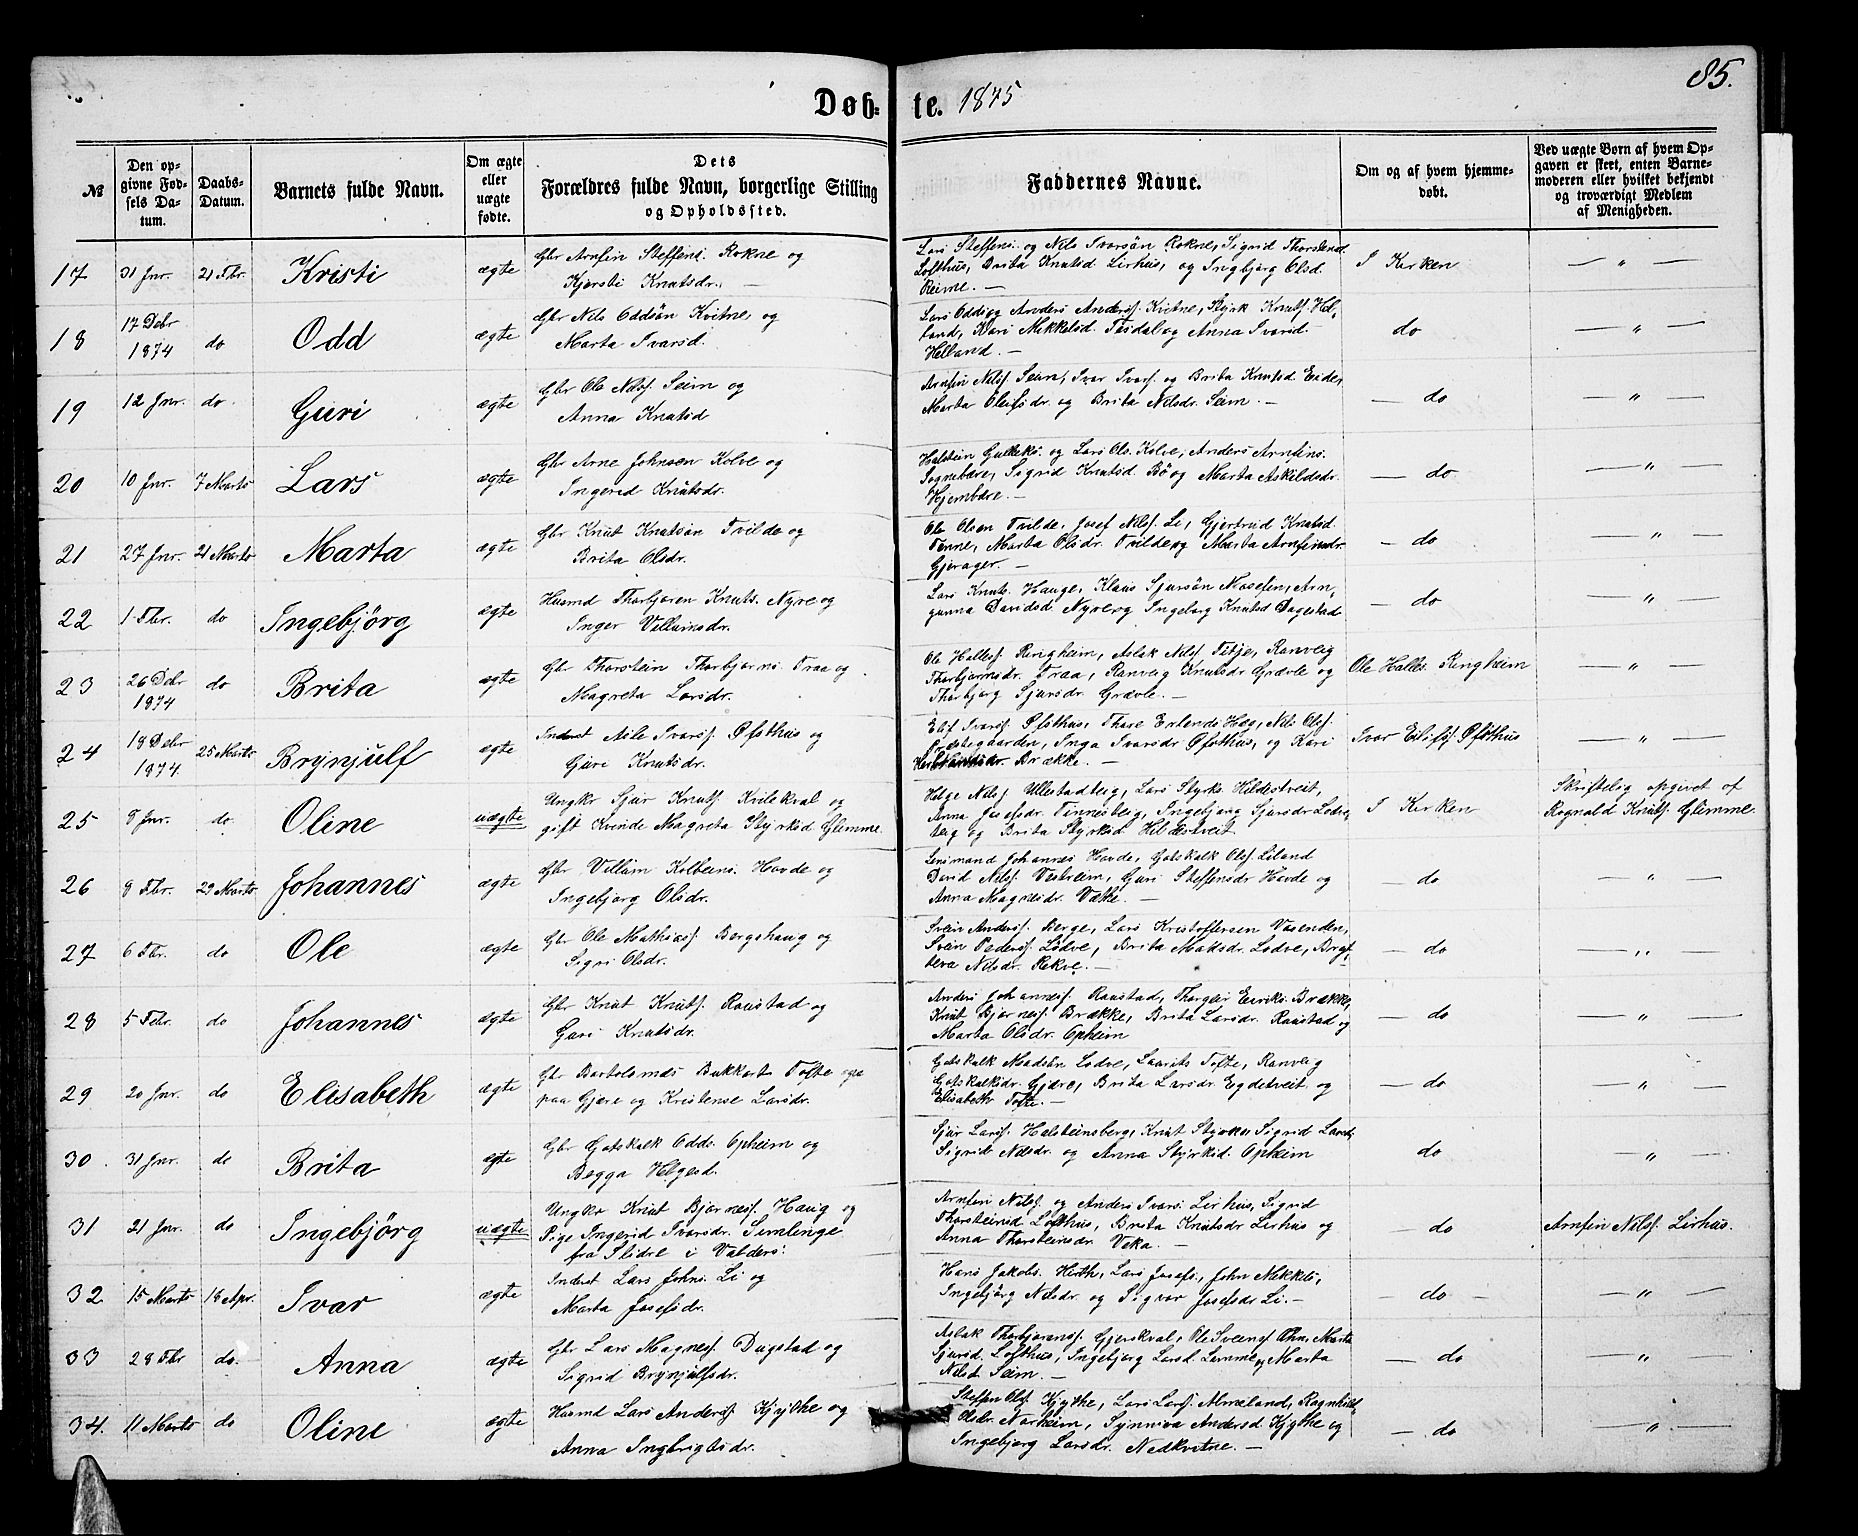 85.
Døb- te. 1875
№
Den op-
givne Fød-
sels Da-
tum.
Daabs-
Datum.
Barnets fulde Navn.
Om ægte
eller
uægte
fødte.
Dets
Forældres fulde Navn, borgerlige Stilling
og Opholdssted.
Faddernes Navne.
Om og af hvem hjemme-
døbt.
Ved uægte Børn af hvem Op-
gaven er skeet, enten Barne-
moderen eller hvilket bekjendt
og troværdigt Medlem
af Menigheden.
17 31 Jnr. 21 Fbr. Kristi ægte Gbr Arnfin Steffens. Rokne og
Kjersti Knutsdr. —
Lars Steffens. og Nils Ivarsön Rokne, Sigrid Thorsteinsd.
Lofthus, Brita Knutsd Lirhus, og Ingbjörg Olsd.
Reime. —
I Kirken — " —
18 17 Debr
1874 do Odd ægte Gbr Nils Oddsön Kvitne, og
Marta Ivarsd.
Lars Odds og Anders Andersf. Kvitne, Styrk Knutf. Hel-
land, Kari Mikkelsd. og Anna Ivarsd
Helland. —
do — " —
19 12 Jnr. do. Guri ægte Gbr Ole Nilsf. Seim og
Anna Knutsd
Arnfin Nilsf. Seim, Ivar Ivarf. og Brita Knutsd. Eide,
Marta Olefsdr. og Brita Nilsdr. Seim. —
— do — " —
20 10 Jnr. 7 Marts Lars ægte Gbr Arne Johnsen Kolve og
Ingerid Knutsdr.
Halstein Gulleks. og Lars Ols. Kolve, Anders Arnfins.
Sognebære, Sigrid Knutsd Bö og Marta Askildsdr.
Hjembære. —
— do — " —
21 27 Jnr. 21 Marts Marta ægte Gbr Knut Knutsön Tvilde og
Brita Olsdr.
Ole Olsen Tvilde, Josef Nilsf. Li, Gjertrud Knutsd.
Finne, Marta Olsdr. Tvilde og Marta Arnfinsdr.
Gjerager. —
— do — " —
22 1 Fbr. do Ingebjörg ægte Husmd Thorbjören Knuts. Nyre og
Inger Villumsdr.
Lars Knuts. Hauge, Klaus Sjursön Mosefin, Arn-
gunna Davidsd Nyre og Ingeborg Knutsd Dagestad
— do — " —
23 26 Debr
1874 do Brita ægte Gbr Thorstein Thorbjörns. Traa og
Magreta Larsdr.
Ole Hallesf. Ringheim, Aslak Nilsf. Titje, Ranveig
Thorbjörnsdr. Traa, Ranveig Knutsdr Grævle og
Thorbjörg Sjursdr. Grævle. —
Ole Halles. Ringheim — " —
24 18 Debr
1874. 25 Marts Brynjulf ægte Inderst Nils Ivarsf. Øfsthus og
Guri Knutsdr.
Elif Ivarsf. Øfsthus, Thore Erlends Hæg, Nils Olsf.
Inga Ivarsdr Øfsthus, og Kari
Brække. —
Ivar Elifsf Øfsthus — " —
25 8 Jnr. do. Oline uægte Ungkr Sjur Knutf. Kvilekval og
gift Kvinde Magreta Styrksd Glimme.
Helge Nilsf Ullestadteig, Lars Styrks. Hildestveit,
Anna Josefsdr. Finnesteig, Ingebjörg Sjursdr Lodve-
teig og Brita Styrksd Hildestveit
I Kirken Skriftelig opgivet af
Rognald Knutf. Glimme.
26 9 Fbr. 29 Marts. Johannes ægte Gbr Villum Kolbeins. Hovde og
Ingebjörg Olsdr.
Lensmand Johannes Hovde, Gotskalk Olsf. Liland
David Nilsf. Vestrem, Guri Steffensdr Hovde og
Anna Magnesdr. Væthe. —
— do — " —
27 6 Fbr. do Ole ægte Gbr Ole Mathiasf. Bergshaug og
Sigri Olsdr.
Svein Andersf. Berge, Lars Kristoffersen Vasenden,
Svein Pedersf. Lødve, Brita Matsdr. Lodve, Bryt-
teva Nilsdr. Rekve. —
— do — " —
28 5 Febr. do Johannes ægte Gbr Knut Knutsf. Raustad og
Guri Knutsdr.
Anders Johannesf. Raustad, Thorgeir Eiriks. Brække,
Knut Bjørnesf. Brække, Brita Larsdr. Raustad og
Marta Olsdr. Opheim
— do — " —
29 20 Jnr. do Elisabeth ægte Gbr Bartolomæs Bukkarts Tofte
paa Gjære og Kristense Larsdr.
Gotskalk Madsön Lodve, Laurits Tofte, Ranveig
Gotskalksdr. Gjære, Brita Larsdr. Egdetveit og
Elisabeth Tofte. —
— do — " —
30. 31 Jnr. do Brita ægte Gbr Gotskalk Odds. Opheim og
Begga Helgesd.
Sjur Larsf. Halsteinsberg, Knut Styrks, Sigrid Larsd,
Sigrid Nilsdr. og Anna Styrksd. Opheim
do — " —
31 21 Jnr. do Ingebjörg uægte Ungkr Knut Bjørnesf. Haug og
Pige Ingerid Ivarsdr. Simlenge
fra Slidre i Valders.
Arnfin Nilsf. og Anders Ivars. Lirhus, Sigrid
Thorsteinsd Lofthus, Brita Knutsdr Lirhus og
Anna Thorsteinsdr. Veka. —
— do Arnfin Nilsf. Lirhus.
32 15 Marts 18 Apr. Ivar ægte Inderst Lars Johns. Li og
Marta Josefsdr.
Hans Jakobs. Hirth, Lars Josefs., John Mikkels,
Ingebjörg Nilsdr. og Sigvor Josefsdr Li. —
— do — — " —
33 28 Fbr do. Anna ægte Gbr Lars Magnesf. Dugstad og
Sigrid Brynjulfsdr.
Aslak Thorbjörnsf. Gjerskval, Ole Sveinsf. Øhn, Marta
Sjursd. Lofthus, Ingebjörg Larsd. Lemme og Marta
Nilsd Seim. —
— do — " —
34. 11 Marts do Oline ægte Husmd Lars Andersf. Kjythe og
Anna Ingbrigtsdr.
Steffen Olsf. Kjythe, Lars Larsf. Almeland, Ragnhild
Olsdr. Norheim, Synniva Andersd. Kjythe og
Ingebjörg Larsdr. Nedkvitne. —
— do — " —